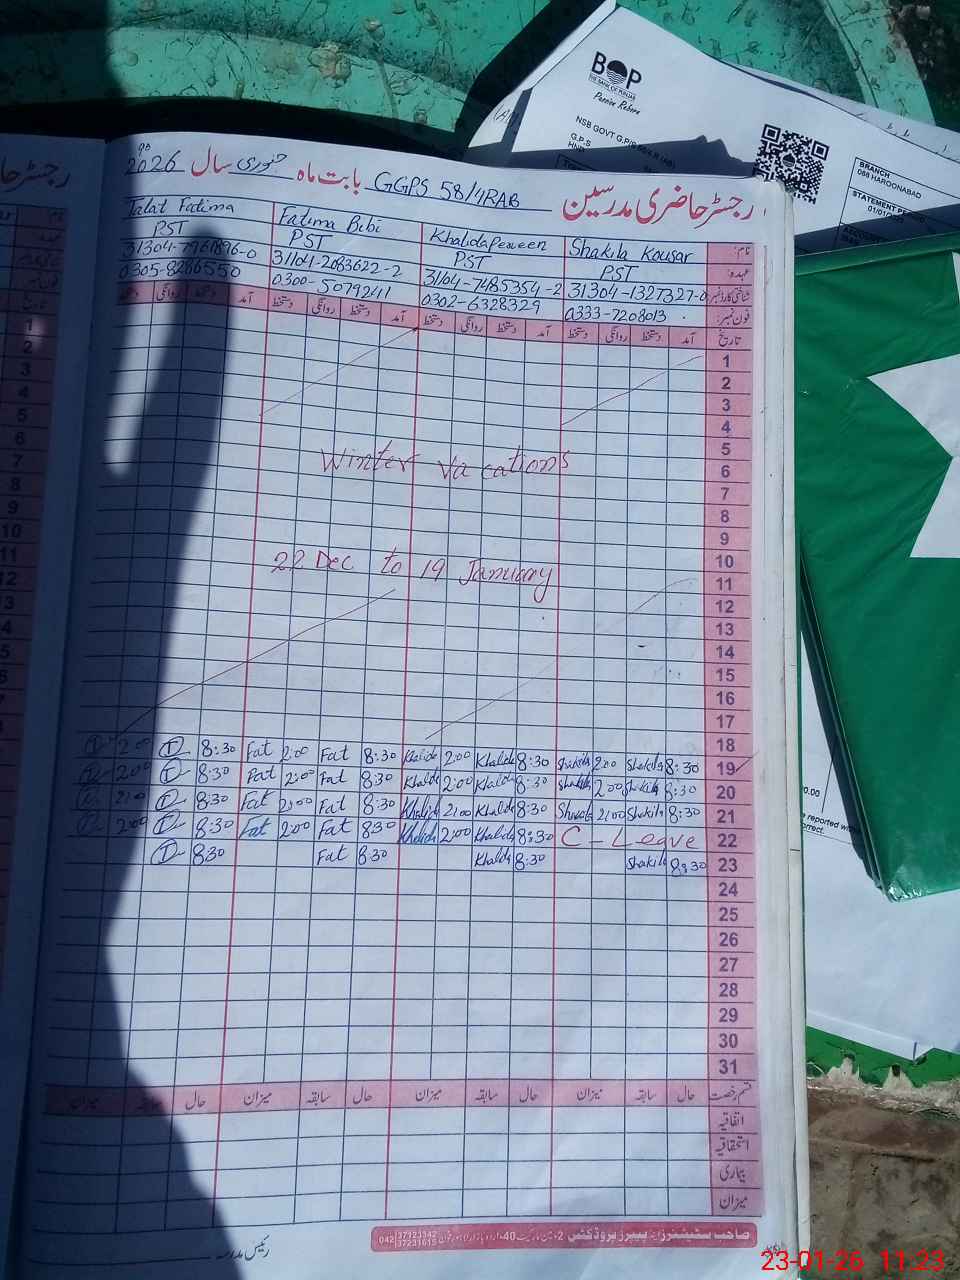 BOP
THE BANK OF PUNJAB
Passion Reborn
NSB GOVT G.P/S
G.P.S
BRANCH
068 HAROONABAD
STATEMENT PE
01/01/
رجسٹر حاضری مدرسین GGPS 58/4RAB بابت ماہ جنوری سال 2026
نام: Shakila Kousar Khalida Perveen Fatima Bibi Talat Fatima
عہدہ: PST PST PST PST
شناختی کارڈ نمبر 31304-1327327-0 31104-7485354-2 31104-2083622-2 31304-7961896-0
فون نمبر: 0333-7208013 0302-6328329 0300-5079241 0305-8286550
تاریخ آمد دستخط روانگی دستخط آمد دستخط روانگی دستخط آمد دستخط روانگی دستخط آمد دستخط روانگی دستخط
1
2
3
4
5
Winter Vacations
6
7
8
9
10
22 Dec to 19 January
11
12
13
14
15
16
17
18
2:00 8:30 Fat 2:00 Fat 8:30 Khalida 2:00 Khalida 8:30 Shakila 2:00 Shakila 8:30 19
2:00 8:30 Fat 2:00 Fat 8:30 Khalida 2:00 Khalida 8:30 Shakila 2:00 Shakila 8:30 20
2:00 8:30 Fat 2:00 Fat 8:30 Khalida 2:00 Khalida 8:30 Shakila 2:00 Shakila 8:30 21
2:00 8:30 Fat 2:00 Fat 8:30 Khalida 2:00 Khalida 8:30 C - Leave 22
8:30 Fat 8:30 Khalida 8:30 Shakila 8:30 23
24
25
26
27
28
29
30
31
قسم رخصت حال سابقہ میزان حال سابقہ میزان حال سابقہ میزان حال سابقہ میزان
اتفاقیہ
استحقاقیہ
بیماری
میزان
رئیس مدرسہ
042 37123342
37231615
23-01-26 11:23